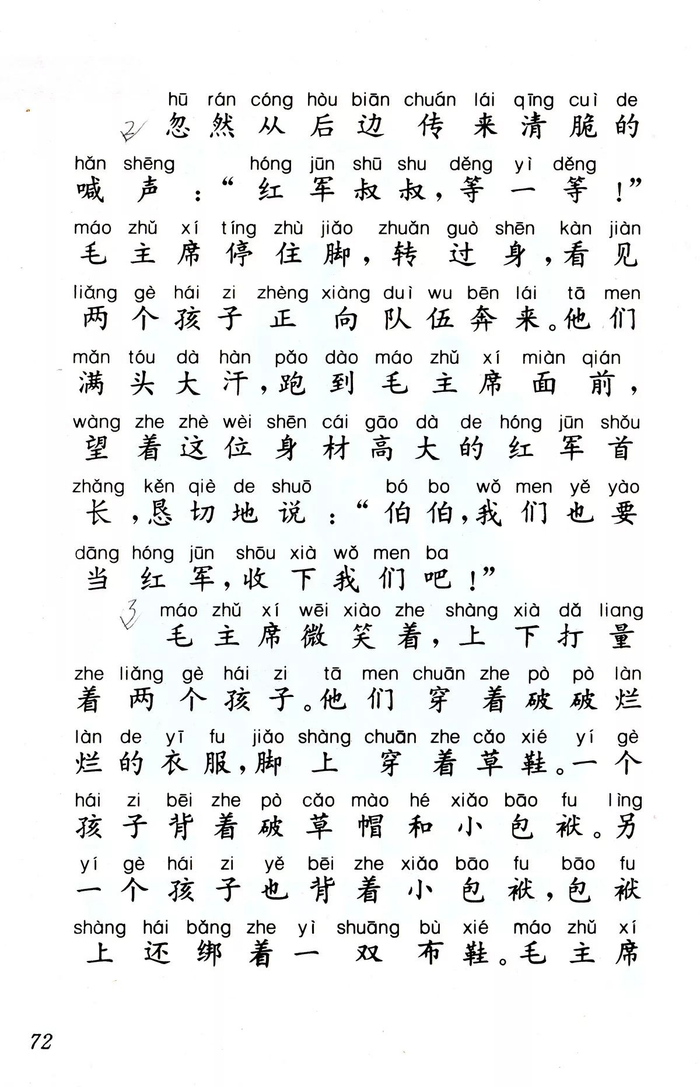 hū rán cóng hòu biān chuán lái qīng cuì de
2 忽然从后边传来清脆的
hǎn shēng hóng jūn shū shu děng yì děng
喊声：“红军叔叔，等一等！”
máo zhǔ xí tíng zhù jiǎo zhuǎn guò shēn kàn jiàn
毛主席停住脚，转过身，看见
liǎng gè hái zi zhèng xiàng duì wu bēn lái tā men
两个孩子正向队伍奔来。他们
mǎn tóu dà hàn pǎo dào máo zhǔ xí miàn qián
满头大汗，跑到毛主席面前，
wàng zhe zhè wèi shēn cái gāo dà de hóng jūn shǒu
望着这位身材高大的红军首
zhǎng kěn qiè de shuō bó bo wǒ men yě yào
长，恳切地说：“伯伯，我们也要
dāng hóng jūn shōu xià wǒ men ba
当红军，收下我们吧！”
máo zhǔ xí wēi xiào zhe shàng xià dǎ liang
3 毛主席微笑着，上下打量
zhe liǎng gè hái zi tā men chuān zhe pò pò làn
着两个孩子。他们穿着破破烂
làn de yī fu jiǎo shàng chuān zhe cǎo xié yí gè
烂的衣服，脚上穿着草鞋。一个
hái zi bēi zhe pò cǎo mào hé xiǎo bāo fu lìng
孩子背着破草帽和小包袱。另
yí gè hái zi yě bēi zhe xiǎo bāo fu bāo fu
一个孩子也背着小包袱，包袱
shàng hái bǎng zhe yì shuāng bù xié máo zhǔ xí
上还绑着一双布鞋。毛主席
72